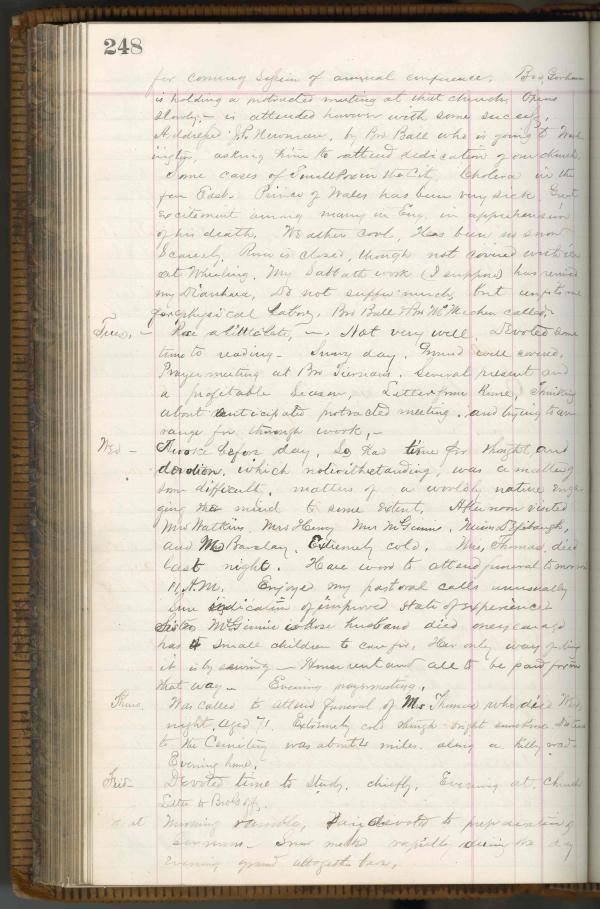 248
for coming session of annual conference. Bro. Gorham
is holding a protracted meeting at that church. Opens
slowly, – is attended however with some success.
Addressed J. P. Newman, by Bro Ball who is going to Wash
ington, asking him to attend dedication of our church.
Some cases of Small Pox in the City. Cholera in the
far East. Prince of Wales has been very sick. Great
excitement among many in Eng. in apprehension
of his death. Weather cool, Has been no snow
scarcely. River is closed, though not covered with ice
at Wheeling. My Sabbath work (I suppose) has
my Diarrhea, Do not suffer much, but
for physical labor. Bro Ball & Bro McMechen called.
Tues, – Rose a little late, –. Not very well. Devoted some
time to reading – Snowy day. Ground well covered.
Prayer meeting at Bro Tiernans. Several present and
a profitable season, Letter from Rime, Thinking
about anticipate protracted meeting, and trying to ar
range for through work, –
Wed – Awoke before day. So had time for thought, and
devotion, which notwithstanding, was a matter
some difficult, matters of a worldly nature enga
ging the mind to some extent. Afternoon visited
Mrs Watkins, Mrs Henry Mrs McGinnis,
and Barclay. Extremely cold. Mrs, Thomas died
last night. Have word to attend funeral tomorrow
11, A.M. Enjoyed my pastoral calls unusually
sure indication of improved state of experience
Sister McGinnis whose husband died
has 4 small children to care for, Her only way of doing
it is by sewing – House rent and all to be paid for in
that way – Evening prayermeeting,
Thurs. Was called to attend funeral of Mrs Thomas who died Wed,
night, aged 71. Extremely cold though bright sunshine. Distance
to the Cemetery was about 4 miles along a hilly road –
Evening home,
Frid – Devoted time to study, chiefly, Evening at, Church
Letter to
Sat Morning ramble, Day devoted to preparation of
sermons – Snow melted rapidly during the day
evening ground altogether bare,